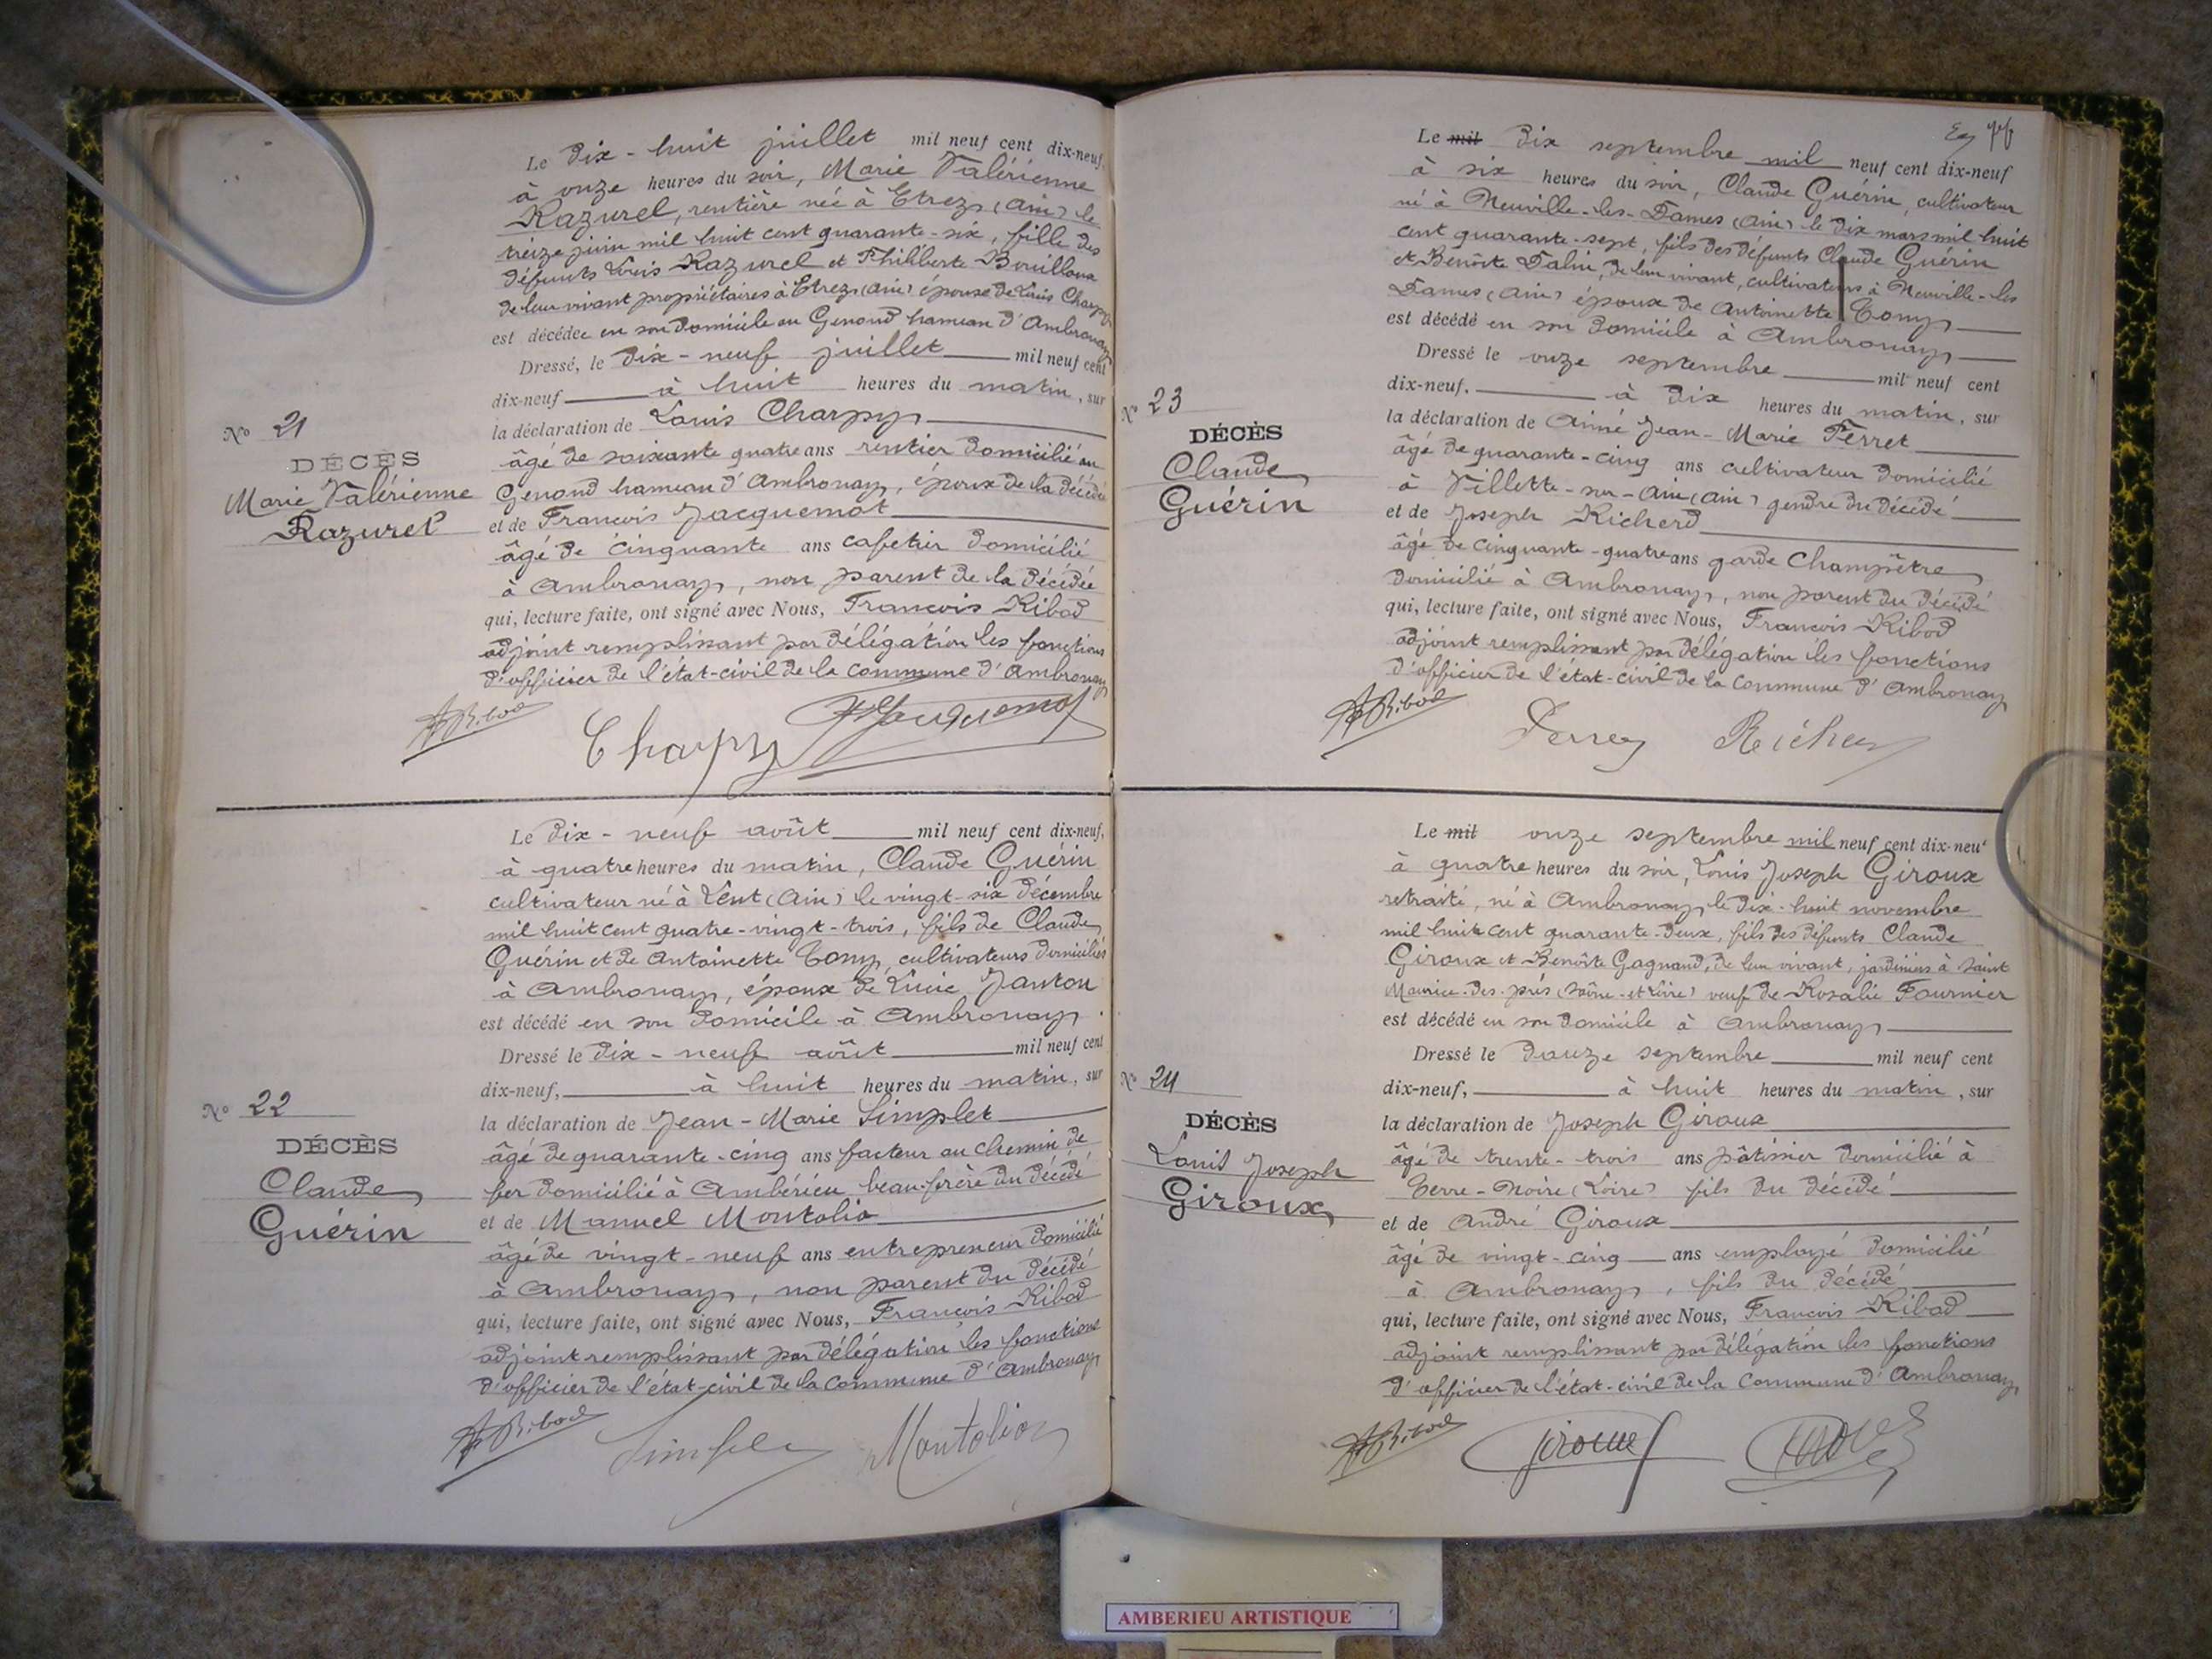 Le dix-huit juillet mil neuf cent dix-neuf,
à onze heures du soir, Marie Valérienne
Razurel, rentière née à Etrez (Ain) le
treize juin mil huit cent quarante-six, fille des
défunts Louis Razurel et Philiberte Bouilloux
de leur vivant propriétaires à Etrez (Ain) épouse de Louis Charpy
est décédée en son domicile au Genoud hameau d'Ambronay
Dressé, le dix-neuf juillet mil neuf cent
dix-neuf à huit heures du matin, sur
la déclaration de Louis Charpy
âgé de soixante quatre ans rentier domicilié au
Genoud hameau d'Ambronay, époux de la décédée
et de François Jacquemot
âgé de cinquante ans cafetier domicilié
à Ambronay, non parent de la décédée
qui, lecture faite, ont signé avec Nous, François Ribod
adjoint remplissant par délégation les fonctions
d'officier de l'état-civil de la commune d'Ambronay
N° 21
DÉCÈS
Marie Valérienne
Razurel
F Ribod
Charpy
Jacquemot
Le dix-neuf août mil neuf cent dix-neuf,
à quatre heures du matin, Claude Guérin
cultivateur né à Lent (Ain) le vingt-six décembre
mil huit cent quatre-vingt-trois, fils de Claude
Guérin et de Antoinette Tony cultivateurs domiciliés
à Ambronay, époux de Lucie Janton
est décédé en son domicile à Ambronay.
Dressé le dix-neuf août mil neuf cent
dix-neuf, à huit heures du matin, sur
la déclaration de Jean-Marie Simplet
âgé de quarante-cinq ans facteur au chemin de
fer domicilié à Ambérieu beau-frère du décédé
et de Manuel Montolio
âgé de vingt-neuf ans entrepreneur domicilié
à Ambronay, non parent du décédé
qui, lecture faite, ont signé avec Nous, François Ribod
adjoint remplissant par délégation les fonctions
d'officier de l'état-civil de la commune d'Ambronay
N° 22
DÉCÈS
Claude
Guérin
F Ribod
Simplet
Montolio
Le mil dix septembre mil neuf cent dix-neuf
à six heures du soir, Claude Guérin, cultivateur
né à Neuville-les-Dames (Ain) le dix mars mil huit
cent quarante-sept, fils des défunts Claude Guérin
et Benoîte Dalin, de leur vivant, cultivateurs à Neuville-les
Dames (Ain) époux de Antoinette Tony
est décédé en son domicile à Ambronay
Dressé le onze septembre mil neuf cent
dix-neuf, à dix heures du matin, sur
la déclaration de Aimé Jean-Marie Ferret
âgé de quarante-cinq ans cultivateur domicilié
à Villette-sur-Ain (Ain) gendre du décédé
et de Joseph Richerd
âgé de cinquante-quatre ans garde champêtre
domicilié à Ambronay, non parent du décédé
qui, lecture faite, ont signé avec Nous, François Ribod
adjoint remplissant par délégation les fonctions
d'officier de l'état-civil de la commune d'Ambronay
N° 23
DÉCÈS
Claude
Guérin
F Ribod
Ferret
Richerd
Le mil onze septembre mil neuf cent dix-neuf
à quatre heures du soir, Louis Joseph Giroux
retraité, né à Ambronay le dix-huit novembre
mil huit cent quarante-deux, fils des défunts Claude
Giroux et Benoîte Gagnand, de leur vivant, jardiniers à Saint
Maurice-des-prés (Saône-et-Loire) veuf de Rosalie Fournier
est décédé en son domicile à Ambronay
Dressé le douze septembre mil neuf cent
dix-neuf, à huit heures du matin, sur
la déclaration de Joseph Giroux
âgé de trente-trois ans pâtissier domicilié à
Terre-Noire (Loire) fils du décédé
et de André Giroux
âgé de vingt-cinq ans employé domicilié
à Ambronay, fils du décédé
qui, lecture faite, ont signé avec Nous, François Ribod
adjoint remplissant par délégation les fonctions
d'officier de l'état-civil de la commune d'Ambronay
N° 24
DÉCÈS
Louis Joseph
Giroux
F Ribod
Giroux
AMBERIEU ARTISTIQUE